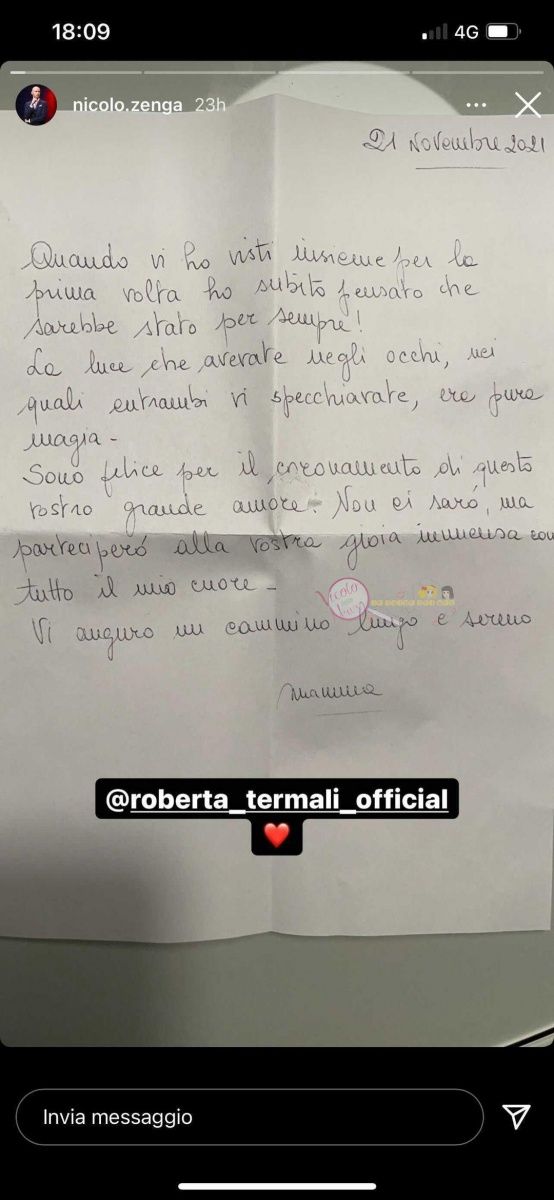 18:09
4G
nicolo.zenga 23h
21 Novembre 2021
Quando vi ho visti insieme per la
prima volta ho subito pensato che
sarebbe stato per sempre!
La luce che avevate negli occhi, nei
quali entrambi vi specchiavate, era pura
magia -
Sono felice per il coronamento di questo
vostro grande amore. Non ci sarò, ma
parteciperó alla vostra gioia immensa con
tutto il mio cuore -
Vi auguro un cammino lungo e sereno
mamma
@roberta_termali_official
Invia messaggio